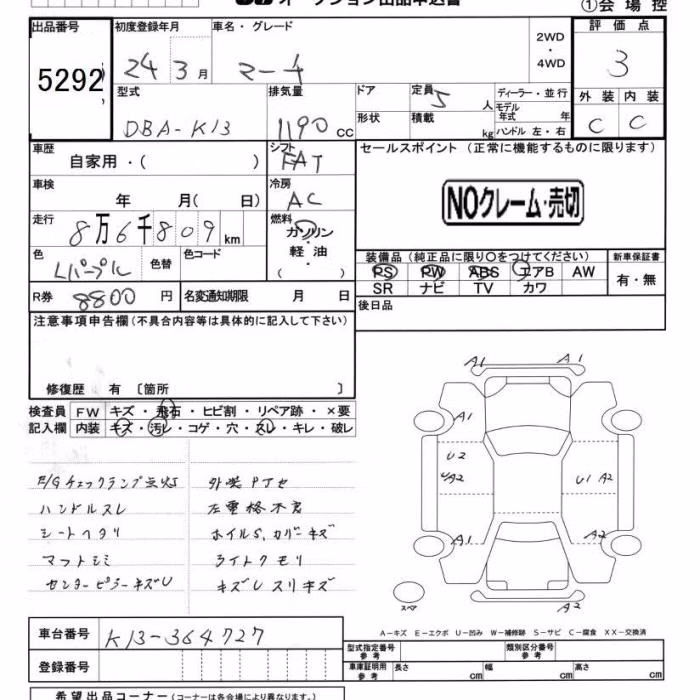 オークション出品申込書 ①会場控
出品番号 5292
初度登録年月 24 3月
車名・グレード マーチ
2WD・4WD
評価点 3
型式 DBA-K13
排気量 1190 cc
ドア
定員 5 人
ディーラー・並行
モデル年式 年
形状
積載 kg
ハンドル 左・右
外装 内装
C C
車歴 自家用・( )
シフト FAT
セールスポイント (正常に機能するものに限ります)
NOクレーム・売切
車検 年 月( 日)
冷房 AC
走行 8万6千809 km
燃料 ガソリン・軽油・( )
色 Lパープル 色替
色コード
装備品 (純正品に限り○をつけてください)
新車保証書
PS PW ABS エアB AW
有・無
SR ナビ TV カワ
R券 8800 円
名変通知期限 月 日
後日品
注意事項申告欄 (不具合内容等は具体的に記入して下さい)
修復歴 有 〔箇所 〕
検査員記入欄
FW キズ・飛石・ヒビ割・リペア跡・×要
内装 キズ・汚レ・コゲ・穴・スレ・キレ・破レ
E/Gチェックランプ点灯
ハンドルスレ
シートヘタリ
マットシミ
センターピラーキズU
左電格不良
ホイルS、カバーキズ
ライトクモリ
キズUスリキズ
A1 A1
A1
U2
U/A2 U1 A2
A1 A2
スペア
A2
A-キズ E-エクボ U-凹み W-補修跡 S-サビ C-腐食 XX-交換済
車台番号 K13-364727
登録番号
型式指定番号 参考
類別区分番号 参考
車庫証明用 参考 長さ cm 幅 cm 高さ cm
希望出品コーナー (コーナーは各会場により異なります。)